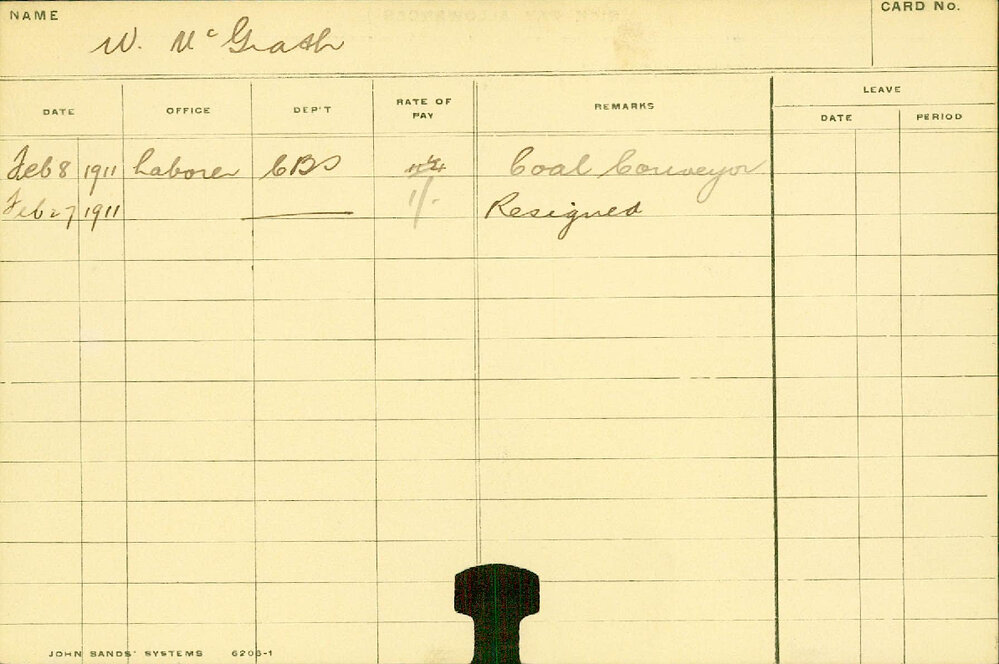 NAME CARD No.
W. McGrath
DATE OFFICE DEP'T RATE OF PAY REMARKS LEAVE
DATE PERIOD
Feb 8 1911 Laborer CBS Coal Conveyor
Feb 27 1911 11/- Resigned
JOHN SANDS' SYSTEMS 6206-1